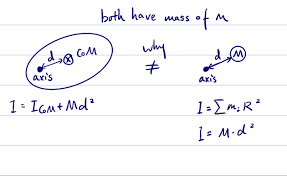 both have mass of M
d
COM
axis
why
≠
d
M
axis
I = I_COM + Md²
I = ∑ mᵢ R²
I = M · d²